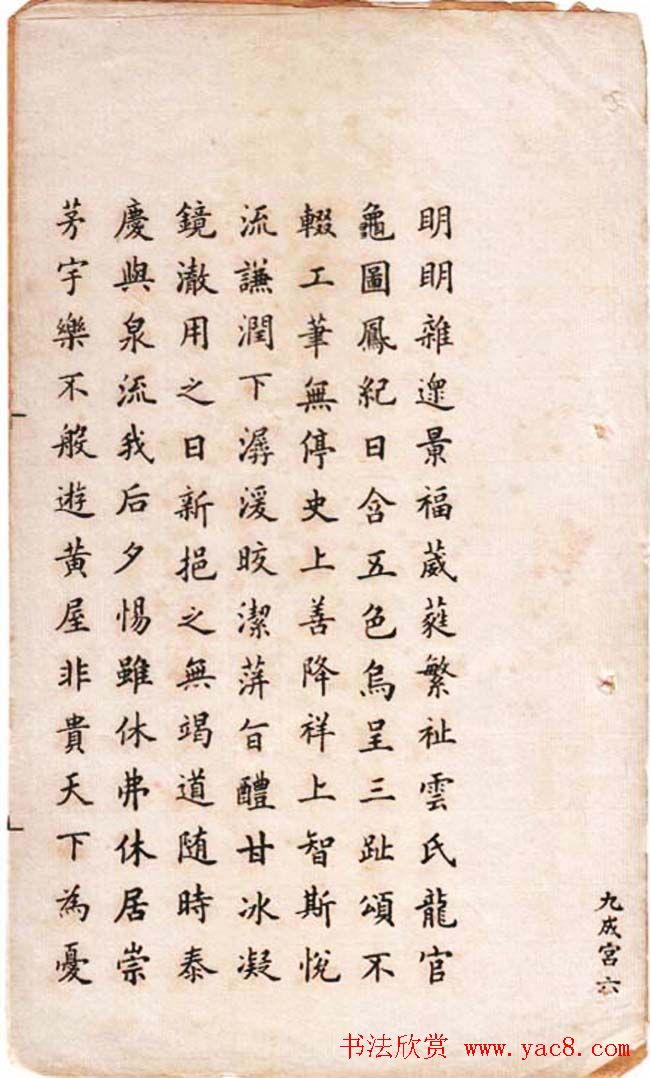 九成宮 六
明明雜遝景福葳蕤繁祉雲氏龍官
龜圖鳳紀日含五色烏呈三趾頌不
輟工筆無停史上善降祥上智斯悅
流謙潤下潺湲皎潔蓱旨醴甘冰凝
鏡澈用之日新挹之無竭道随時泰
慶與泉流我后夕惕雖休弗休居崇
茅宇樂不般遊黄屋非貴天下為憂
书法欣赏 www.yac8.com